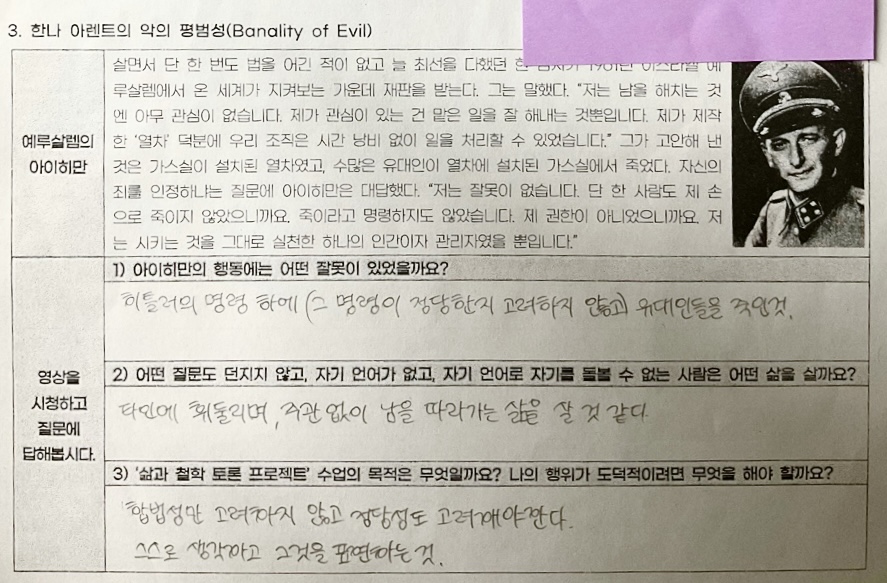 3. 한나 아렌트의 악의 평범성(Banality of Evil)
살면서 단 한 번도 법을 어긴 적이 없고 늘 최선을 다했던 한
루살렘에서 온 세계가 지켜보는 가운데 재판을 받는다. 그는 말했다. "저는 남을 해치는 것
엔 아무 관심이 없습니다. 제가 관심이 있는 건 맡은 일을 잘 해내는 것뿐입니다. 제가 제작
한 '열차' 덕분에 우리 조직은 시간 낭비 없이 일을 처리할 수 있었습니다." 그가 고안해 낸
것은 가스실이 설치된 열차였고, 수많은 유대인이 열차에 설치된 가스실에서 죽었다. 자신의
죄를 인정하냐는 질문에 아이히만은 대답했다. "저는 잘못이 없습니다. 단 한 사람도 제 손
으로 죽이지 않았으니까요. 죽이라고 명령하지도 않았습니다. 제 권한이 아니었으니까요. 저
는 시키는 것을 그대로 실천한 하나의 인간이자 관리자였을 뿐입니다."
예루살렘의
아이히만
1) 아이히만의 행동에는 어떤 잘못이 있었을까요?
히틀러의 명령 하에 (그 명령이 정당한지 고려하지 않고) 유대인들을 죽인것.
영상을
시청하고
질문에
답해봅시다.
2) 어떤 질문도 던지지 않고, 자기 언어가 없고, 자기 언어로 자기를 돌볼 수 없는 사람은 어떤 삶을 살까요?
타인에 휘둘리며, 주관 없이 남을 따라가는 삶을 살 것 같다.
3) '삶과 철학 토론 프로젝트' 수업의 목적은 무엇일까요? 나의 행위가 도덕적이려면 무엇을 해야 할까요?
합법성만 고려하지 않고 정당성도 고려해야한다.
스스로 생각하고 그것을 표현하는 것.